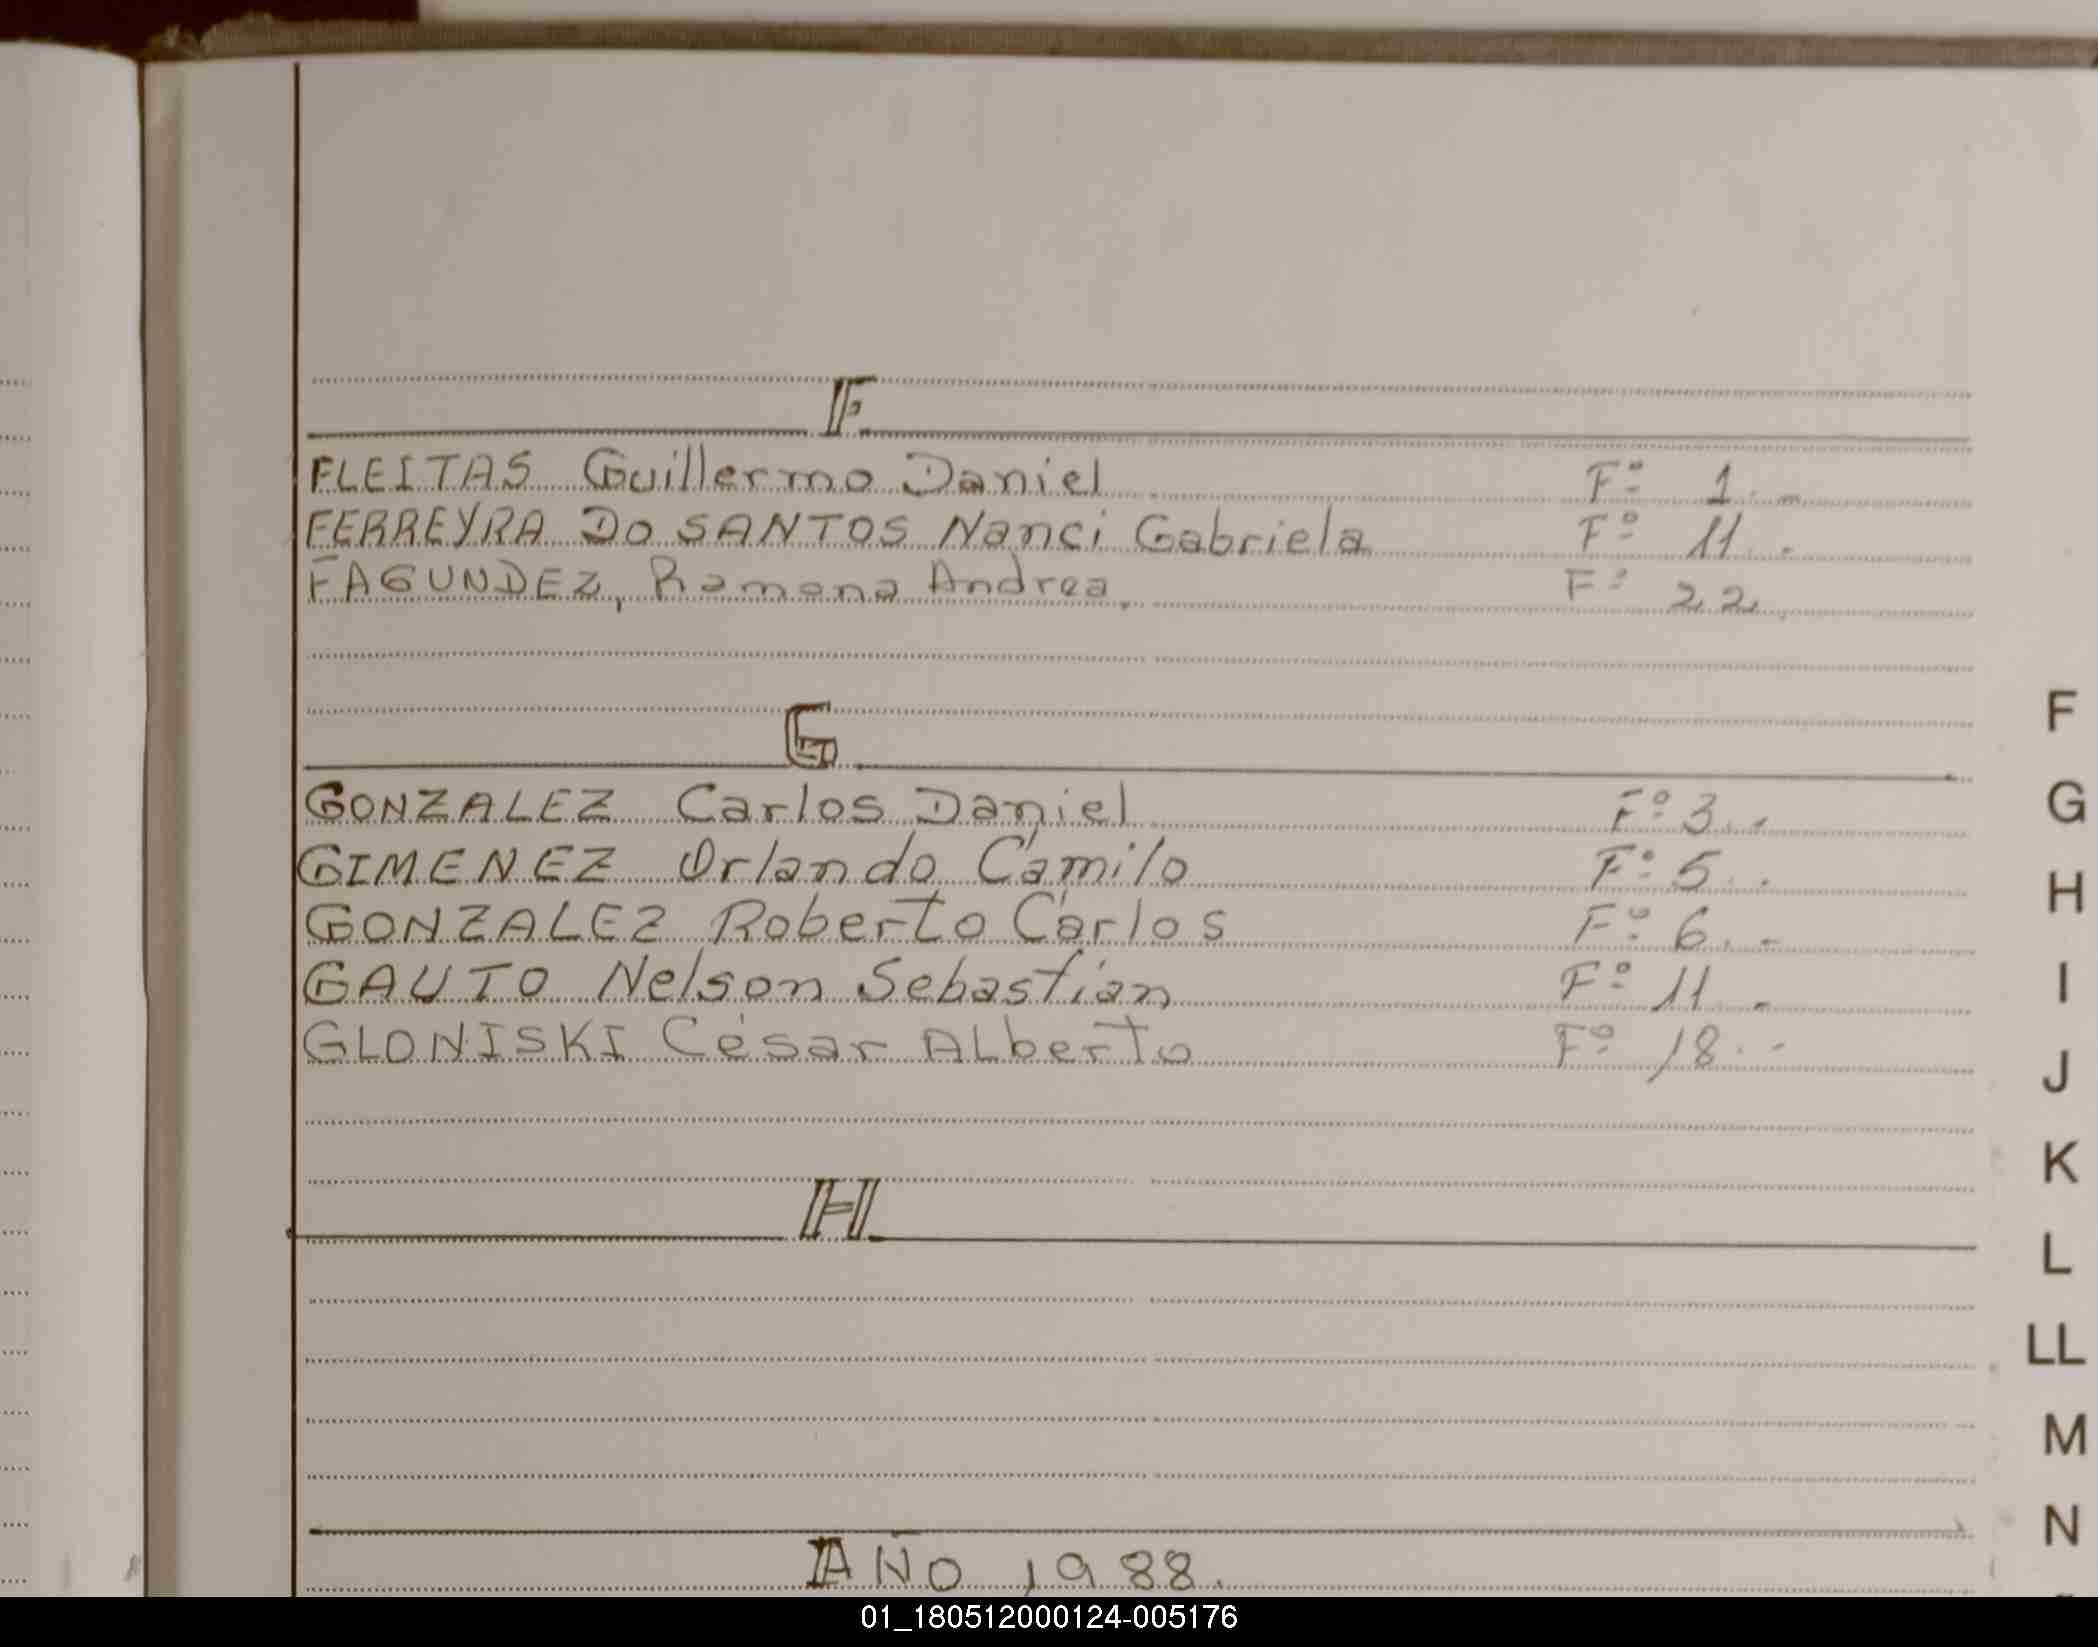 F
FLEITAS Guillermo Daniel Fº 1.-
FERREYRA Do SANTOS Nanci Gabriela Fº 11.-
FAGUNDEZ, Ramona Andrea. Fº 22.
G
GONZALEZ Carlos Daniel Fº 3.-
GIMENEZ Orlando Camilo Fº 5.-
GONZALEZ Roberto Carlos Fº 6.-
GAUTO Nelson Sebastián Fº 11.-
GLONISKI César ALberto Fº 18.-
H
AÑO 1988.
F
G
H
I
J
K
L
LL
M
N
01_180512000124-005176